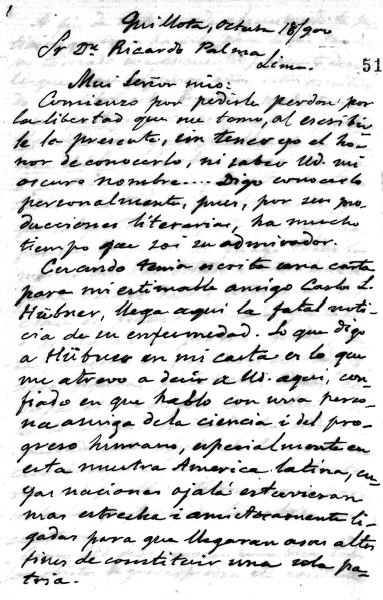 1
Quillota, Octubre 18/900
Sr Dr. Ricardo Palma
Lima.
51
Mui Señor mio:
Comienzo por pedirle perdon por
la libertad que me tomo, al escribir
le la presente, sin tener yo el ho
nor de conocerlo, ni saber Ud. mi
oscuro nombre.... Digo conocerlo
personalmente, pues, por sus pro
ducciones literarias, ha mucho
tiempo que soi su admirador.
Cuando tenia escrita una carta
para mi estimable amigo Carlos L.
Hübner, llega aquí la fatal noti
cia de su enfermedad. Lo que digo
a Hübner en mi carta es lo que
me atrevo a decir a Ud. aquí, con
fiado en que hablo con una perso
na amiga de la ciencia i del pro
greso humano, especialmente en
esta nuestra America latina, cu
yas naciones ojalá estuvieran
mas estrecha i amistosamente li
gadas para que llegaran a sus altos
fines de constituir una sola pa
tria.